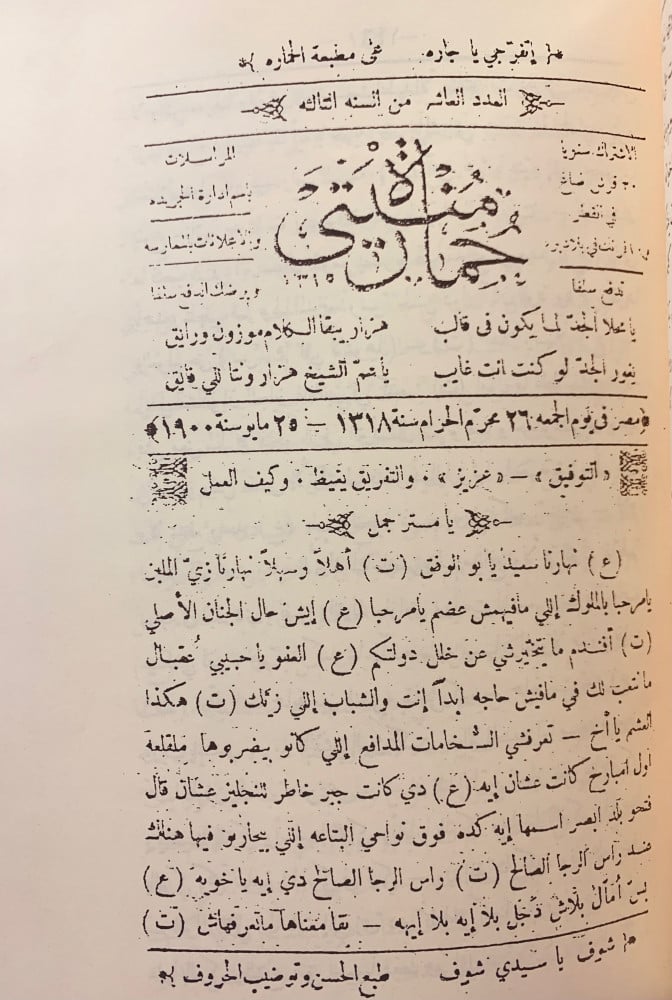 إتفرّجي يا جاره على مطبعة الحماره
العدد العاشر من السنه الثالثه
الاشتراك سنويا
٢٠ قرش صاغ
في القطر
تدفع سلفا
حمارة منيتي
١٣١٥
المراسلات
باسم ادارة الجريده
والاعلانات بتسارسه
وبرضك اندفع سلفا
يا محلا الجدّ لما يكون فى قالب هزار يبقا الكلام موزون ورايق
يغور الجدّ لو كنت انت غايب يا عمّ الشيخ هزار ونتا للي فايق
﴿مصر فى يوم الجمعه ٢٦ محرّم الحرام سنة ١٣١٨ — ٢٥ مايو سنة ١٩٠٠﴾
«التوفيق» — «عزيز». والتفريق يغيظ. وكيف العمل
يا مستر جمل
(ع) نهارنا سعيد يا بو الوفق (ت) أهلاً وسهلاً نهارنا زيّ الملبن
يا مرحبا بالملوك إللي مافيهمش عضم يا مرحبا (ع) إيش حال الجنان الأصلي
(ت) أفندم ما يتخيّرشي عن خلل دولتكم (ع) العفو يا حبيبي عُقبال
ما نتعب لك في مافيش حاجه ابداً إنت والشباب إللي زيّك (ت) هكذا
العشم يا أخ — تعرفشي الشخامات المدافع إللي كانو بيضربوها ملقلعة
اول امبارح كانت عشان إيه (ع) دي كانت جبر خاطر للنجليز عشان قال
فتحو بلد ابصر اسمها إيه كده فوق نواحي البتاعه إللي بيحاربو فيها هنّاك
ضد راس الرجا الصالح (ت) راس الرجا الصالح دي إيه يا خويه (ع)
بسّ أُمّال بلاش دَخل بلا إيه بلا إيهه — بقا معناها ماتعرفهاش (ت)
شوف يا سيدي شوف طبع الحسن وتوضيب الحروف